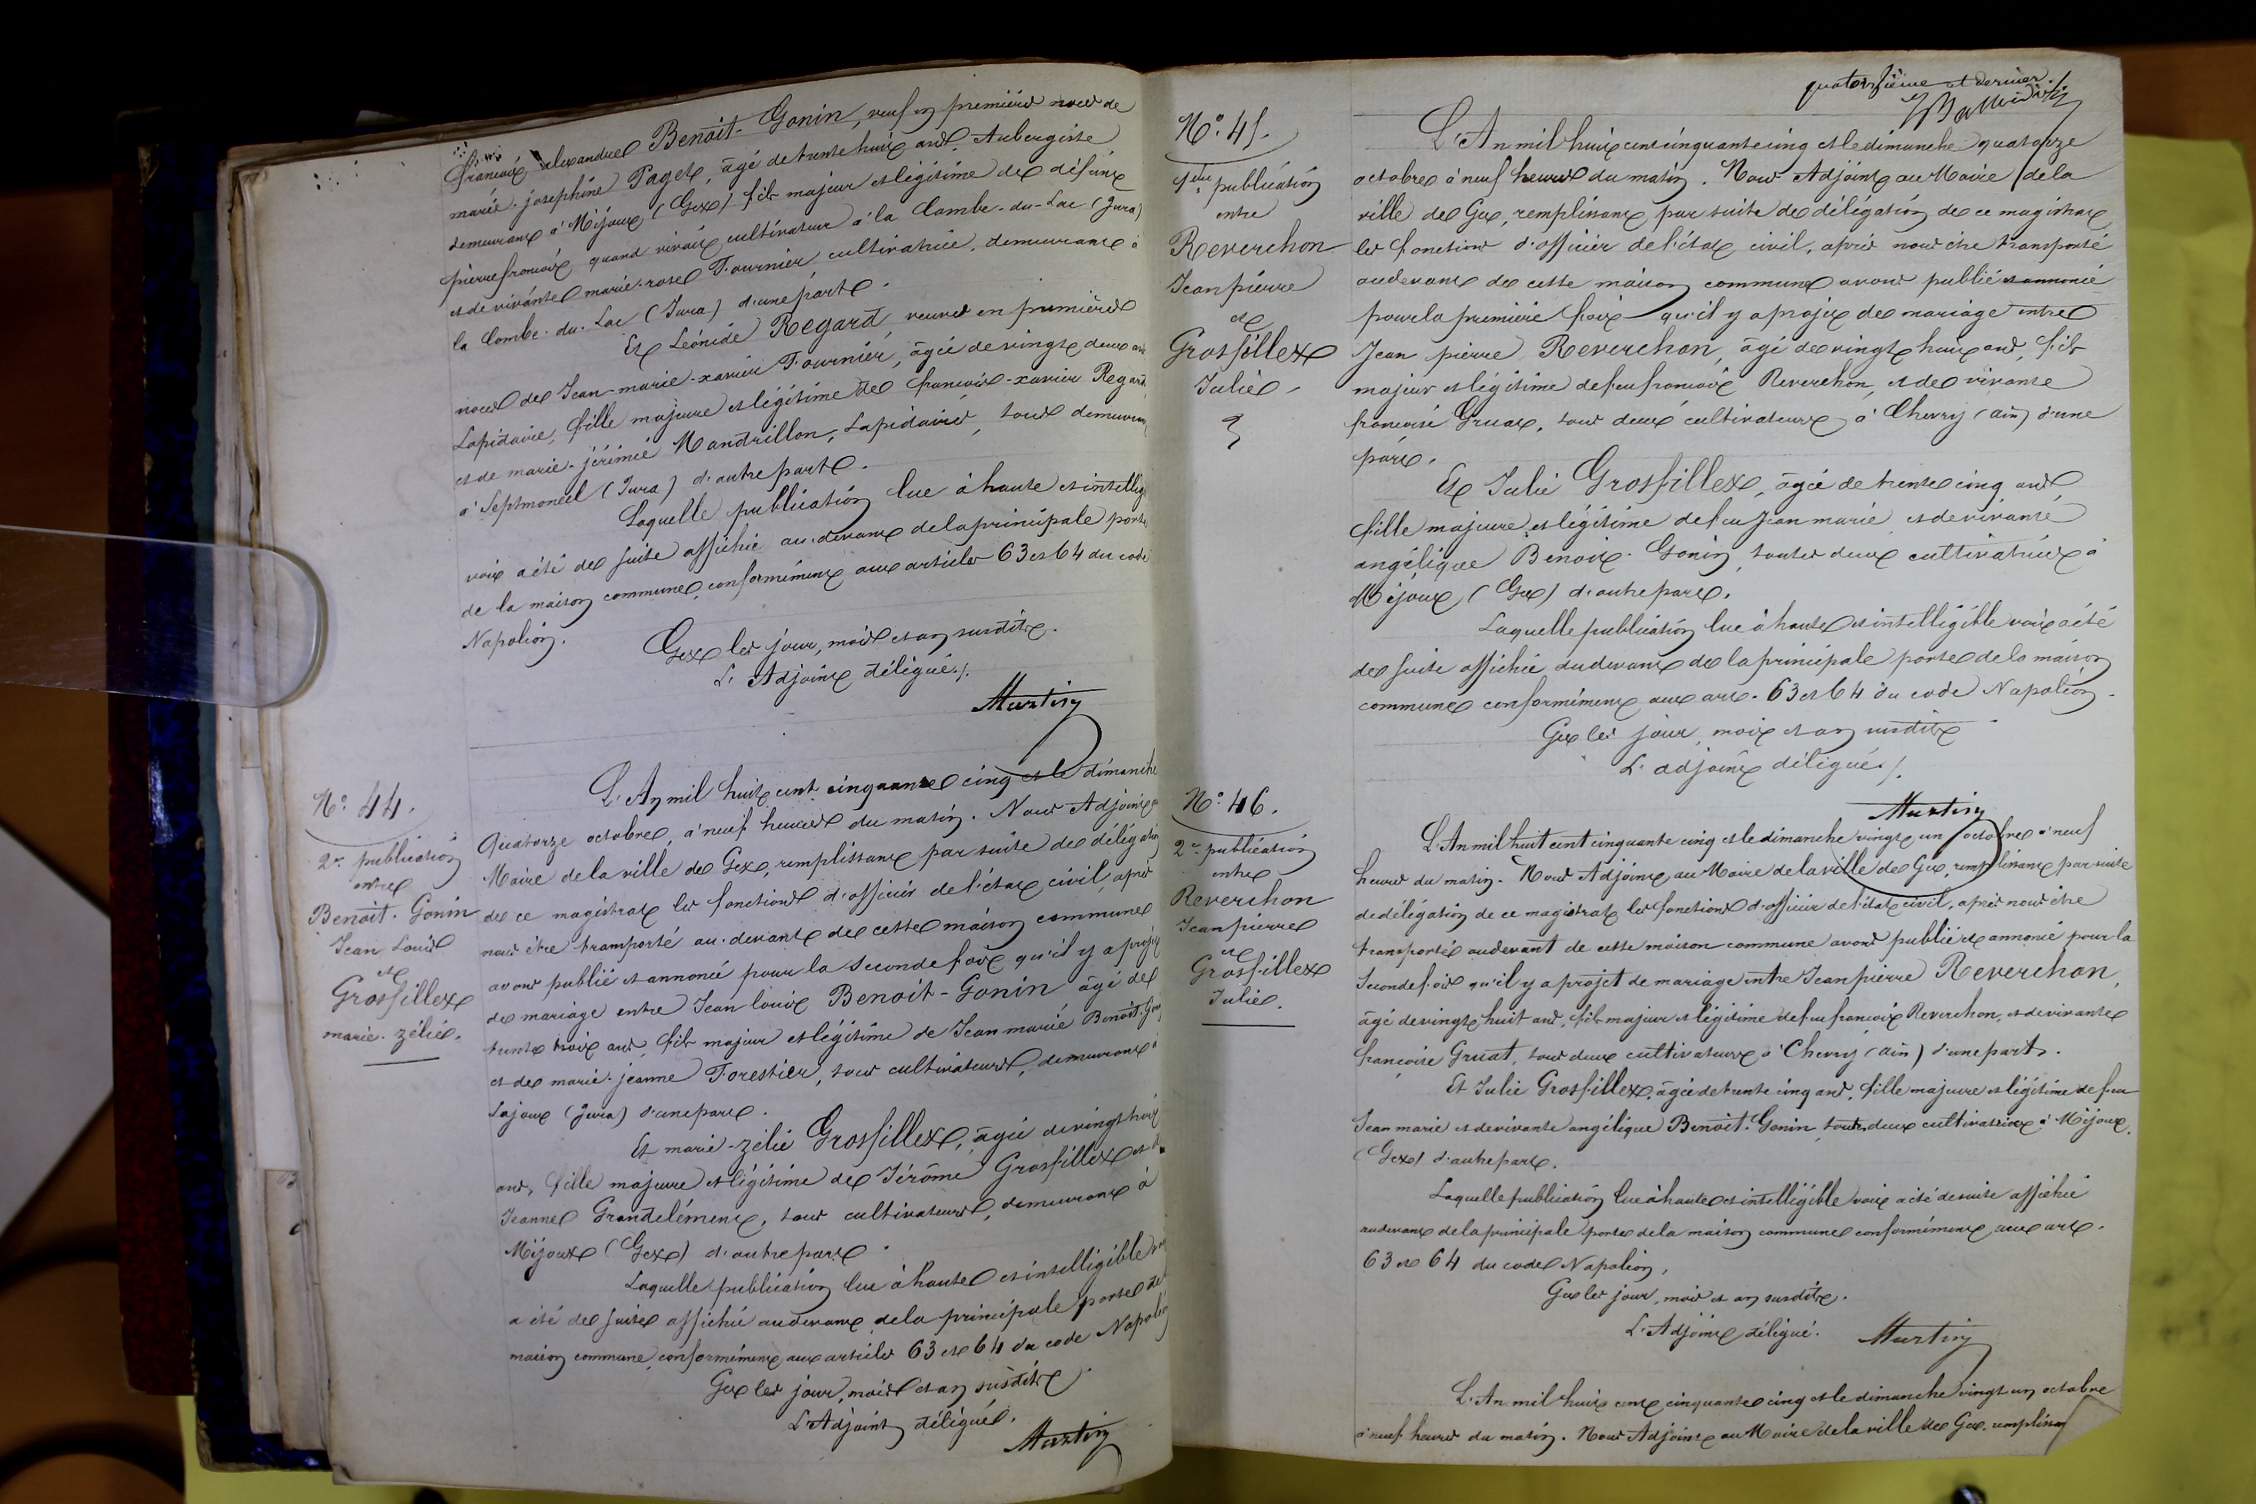 françois alexandre Benoit-Gonin, veuf en premières noces de
marie-joséphine Paget, âgé de trente huit ans, Aubergiste
demeurant à Mijoux (Gex) fils majeur et légitime de défunt
pierre françois quand vivait cultivateur à la Combe-du-Lac (Jura)
et de vivante marie-rose Fournier cultivatrice, demeurant à
la Combe-du-Lac (Jura) d'une part.
Et Léonide Regard, veuve en premières
noces de Jean-marie-xavier Fournier, âgée de vingt deux ans
Lapidaire, fille majeure et légitime de françois-xavier Regard
et de marie-jérémie Mandrillon, Lapidaires, tous demeurant
à Septmoncel (Jura) d'autre part.
Laquelle publication lue à haute et intellig
voix a été de suite affichée au-devant de la principale porte
de la maison commune, conformément aux articles 63 et 64 du code
Napoléon.
Gex les jour, mois et an susdits.
L'Adjoint délégué./.
Martin
N° 44.
2e publication
entre
Benoit-Gonin
Jean Louis
et
Grosfillex
marie-zélie.
L'An mil huit cent cinquante cinq et le dimanche
Quatorze octobre, à neuf heures du matin. Nous Adjoint au
Maire de la ville de Gex, remplissant par suite de délégation
de ce magistrat les fonctions d'officier de l'état civil, après
nous être transporté au-devant de cette maison commune
avons publié et annoncé pour la seconde fois qu'il y a projet
de mariage entre Jean louis Benoit-Gonin âgé de
trente trois ans, fils majeur et légitime de Jean marie Benoit-Gon
et de marie-jeanne Forestier, tous cultivateurs, demeurant à
Lajoux (Jura) d'une part.
Et marie-zélie Grosfillex, âgée de vingt trois
ans, fille majeure et légitime de Jérôme Grosfillex et de
Jeanne Grandclément, tous cultivateurs, demeurant à
Mijoux (Gex) d'autre part.
Laquelle publication lue à haute et intelligible voi
a été de suite affichée au devant de la principale porte de
maison commune, conformément aux articles 63 et 64 du code Napoléon
Gex les jour, mois et an susdits
L'Adjoint délégué.
Martin
quatorzième et dernier
N° 45.
1ère publication
entre
Reverchon
Jean pierre
et
Grosfillex
Julie
L'An mil huit cent cinquante cinq et le dimanche quatorze
octobre à neuf heures du matin. Nous Adjoint au Maire de la
ville de Gex, remplissant par suite de délégation de ce magistrat
les fonctions d'officier de l'état civil, après nous être transporté
au devant de cette maison commune avons publié et annoncé
pour la première fois qu'il y a projet de mariage entre
Jean pierre Reverchon, âgé de vingt huit ans, fils
majeur et légitime de feu françois Reverchon, et de vivante
françoise Gruat, tous deux cultivateurs à Chevry (ain) d'une
part.
Et Julie Grosfillex, âgée de trente cinq ans,
fille majeure et légitime de feu Jean marie et de vivante
angélique Benoit-Gonin, toutes deux cultivatrices à
Mijoux (Gex) d'autre part.
Laquelle publication lue à haute et intelligible voix a été
de suite affichée au devant de la principale porte de la maison
commune conformément aux art. 63 et 64 du code Napoléon.
Gex les jour, mois et an susdits
L'adjoint délégué./.
Martin
N° 46.
2e publication
entre
Reverchon
Jean pierre
et
Grosfillex
Julie.
L'An mil huit cent cinquante cinq et le dimanche vingt un octobre à neuf
heures du matin. Nous Adjoint au Maire de la ville de Gex, remplissant par suite
de délégation de ce magistrat les fonctions d'officier de l'état civil, après nous être
transporté au devant de cette maison commune avons publié et annoncé pour la
seconde fois qu'il y a projet de mariage entre Jean pierre Reverchon,
âgé de vingt huit ans, fils majeur et légitime de feu françois Reverchon, et de vivante
françoise Gruat, tous deux cultivateurs à Chevry (ain) d'une part.
Et Julie Grosfillex, âgée de trente cinq ans, fille majeure et légitime de feu
Jean marie et de vivante angélique Benoit-Gonin, toutes deux cultivatrices à Mijoux
(Gex) d'autre part.
Laquelle publication lue à haute et intelligible voix a été de suite affichée
au devant de la principale porte de la maison commune conformément aux art.
63 et 64 du code Napoléon,
Gex les jour, mois et an susdits.
L'Adjoint délégué. Martin
L'An mil huit cent cinquante cinq et le dimanche vingt un octobre
à neuf heures du matin. Nous Adjoint au Maire de la ville de Gex, remplissan